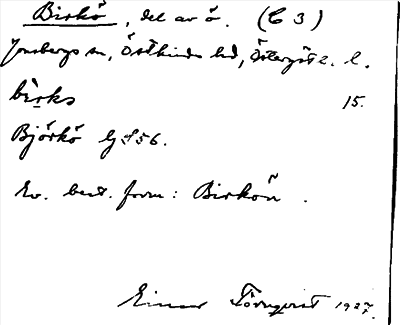 Birkö, del av ö. (C 3)
Jonsbergs sn, Östkinds hd, Östergötl. l.
birks 15.
Björkö GS 56.
Ev. best. form: Birkön.
Einar Törnqvist 1927.